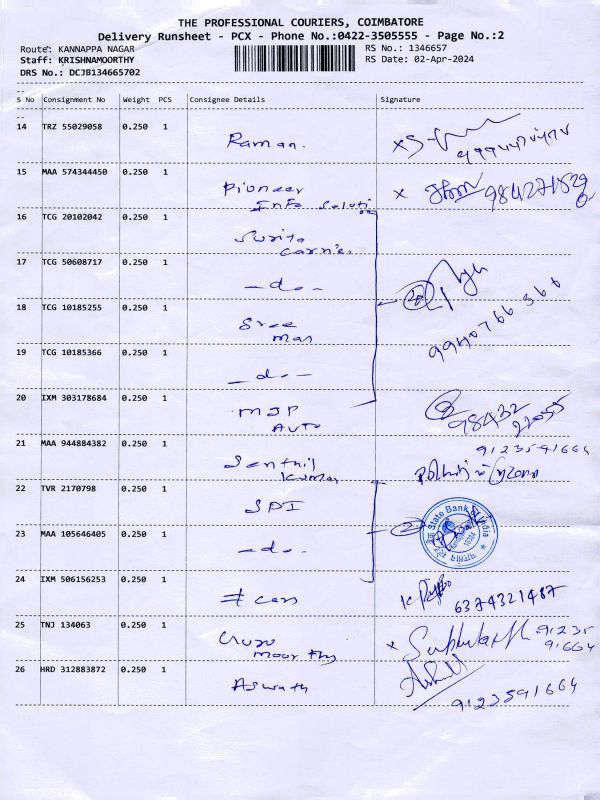 THE PROFESSIONAL COURIERS, COIMBATORE
Delivery Runsheet - PCX - Phone No.:0422-3505555 - Page No.:2
Route: KANNAPPA NAGAR RS No.: 1346657
Staff: KRISHNAMOORTHY RS Date: 02-Apr-2024
DRS No.: DCJB134665702
S No Consignment No Weight PCS Consignee Details Signature
14 TRZ 55029058 0.250 1 Raman.
15 MAA 574344450 0.250 1 Pioneer
Info Solution
16 TCG 20102042 0.250 1
17 TCG 50608717 0.250 1 -do-
18 TCG 10185255 0.250 1 Sree
man
9940766566
19 TCG 10185366 0.250 1 -do-
20 IXM 303178684 0.250 1 MJP
AUTO
98432
22055
21 MAA 944884382 0.250 1 Senthil
Kumar
9123591664
22 TVR 2170798 0.250 1 SPI
State Bank of India
23 MAA 105646405 0.250 1 -do-
24 IXM 506156253 0.250 1 cars
6374321487
25 TNJ 134063 0.250 1 Guru
moorthy
91235
91664
26 HRD 312883872 0.250 1 Aswath
9123591664